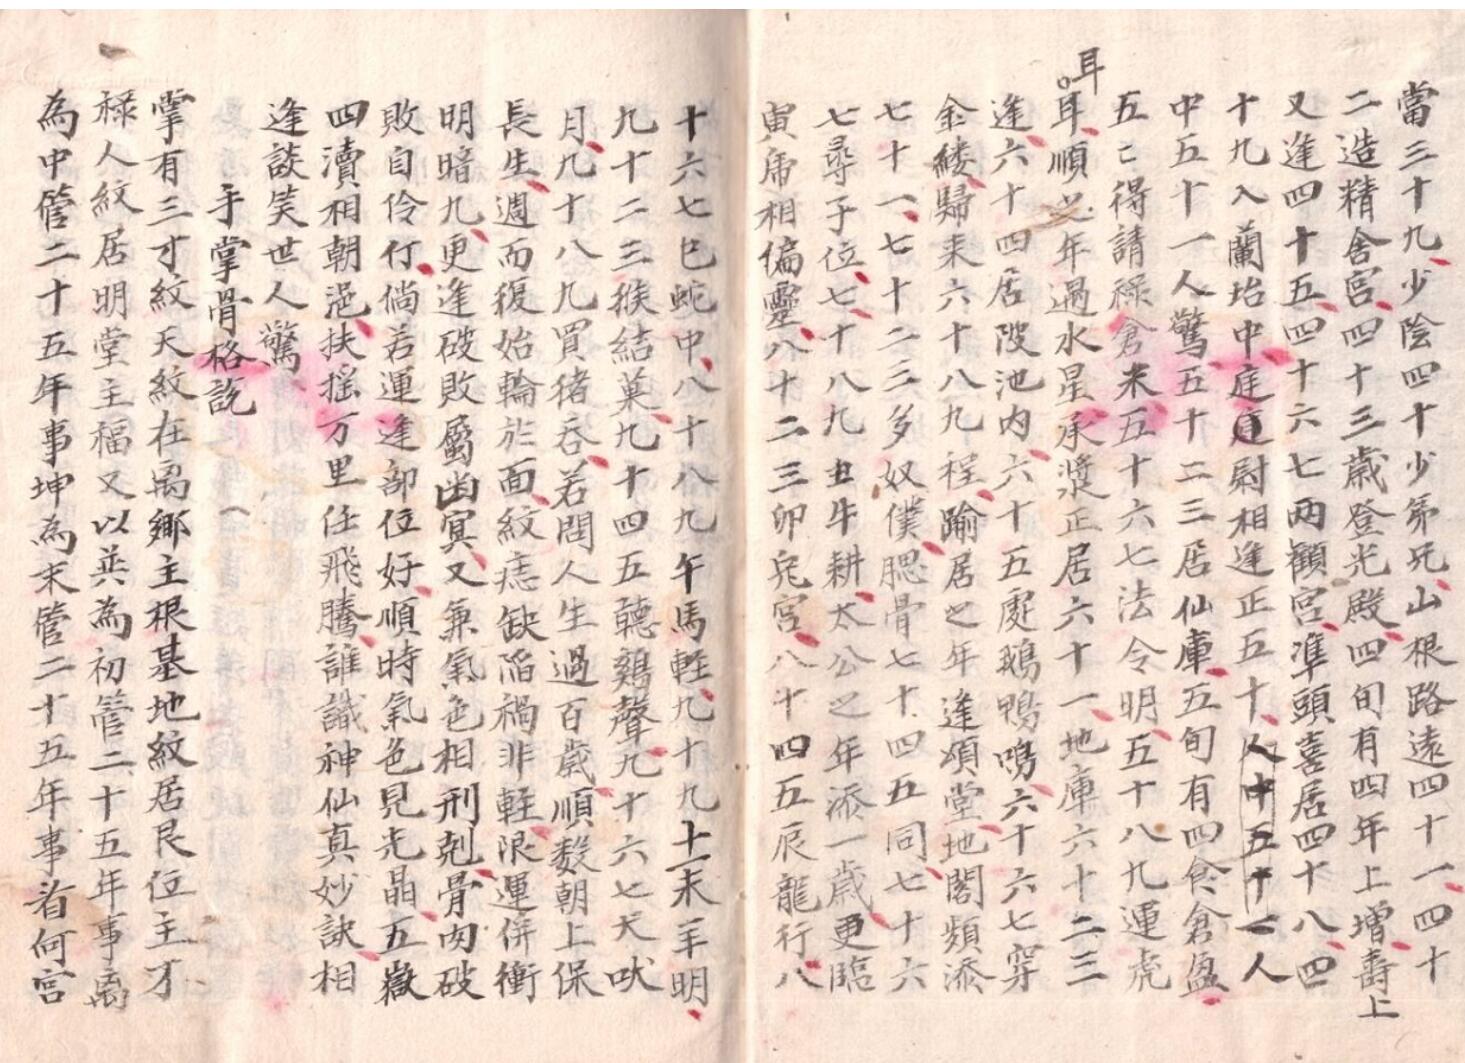 當三十九少陰四十少弟兄山根路遠四十一四十
二造精舍宮四十三歲登光殿四旬有四年上增壽上
又逢四十五四十六七兩顴宮準頭喜居四十八四
十九入蘭坮中庭廷尉相逢正五十人中五十一人
中五十一人驚五十二三居仙庫五旬有四食倉盈
五亡得請祿倉米五十六七法令明五十八九運虎
耳
耳順之年過水星承漿正居六十一地庫六十二三
逢六十四居陂池內六十五處鵝鴨鳴六十六七穿
金縷歸來六十八九程踰居之年逢頌堂地閣頻添
七十一七十二三多奴僕腮骨七十四五同七十六
七尋子位七十八九丑牛耕太公之年添一歲更臨
寅虎相偏靈八十二三卯兔宮八十四五辰龍行八
十六七巳蛇中八十八九午馬輕九十九十一未羊明
九十二三猴結菓九十四五聽鷄聲九十六七犬吠
月九十八九買猪吞若問人生過百歲順數朝上保
長生週而復始輪於面紋痣缺陷禍非輕限運併衝
明暗九更逢破敗屬幽冥又兼氣色相刑剋骨肉破
敗自伶仃倘若運逢部位好順時氣色見光晶五嶽
四瀆相朝挹扶搖万里任飛騰誰識神仙真妙訣相
逢談笑世人驚
手掌骨格説
掌有三才紋天紋在离鄉主根基地紋居艮位主才
祿人紋居明堂主福又以巽為初管二十五年事离
為中管二十五年事坤為末管二十五年事看何宮